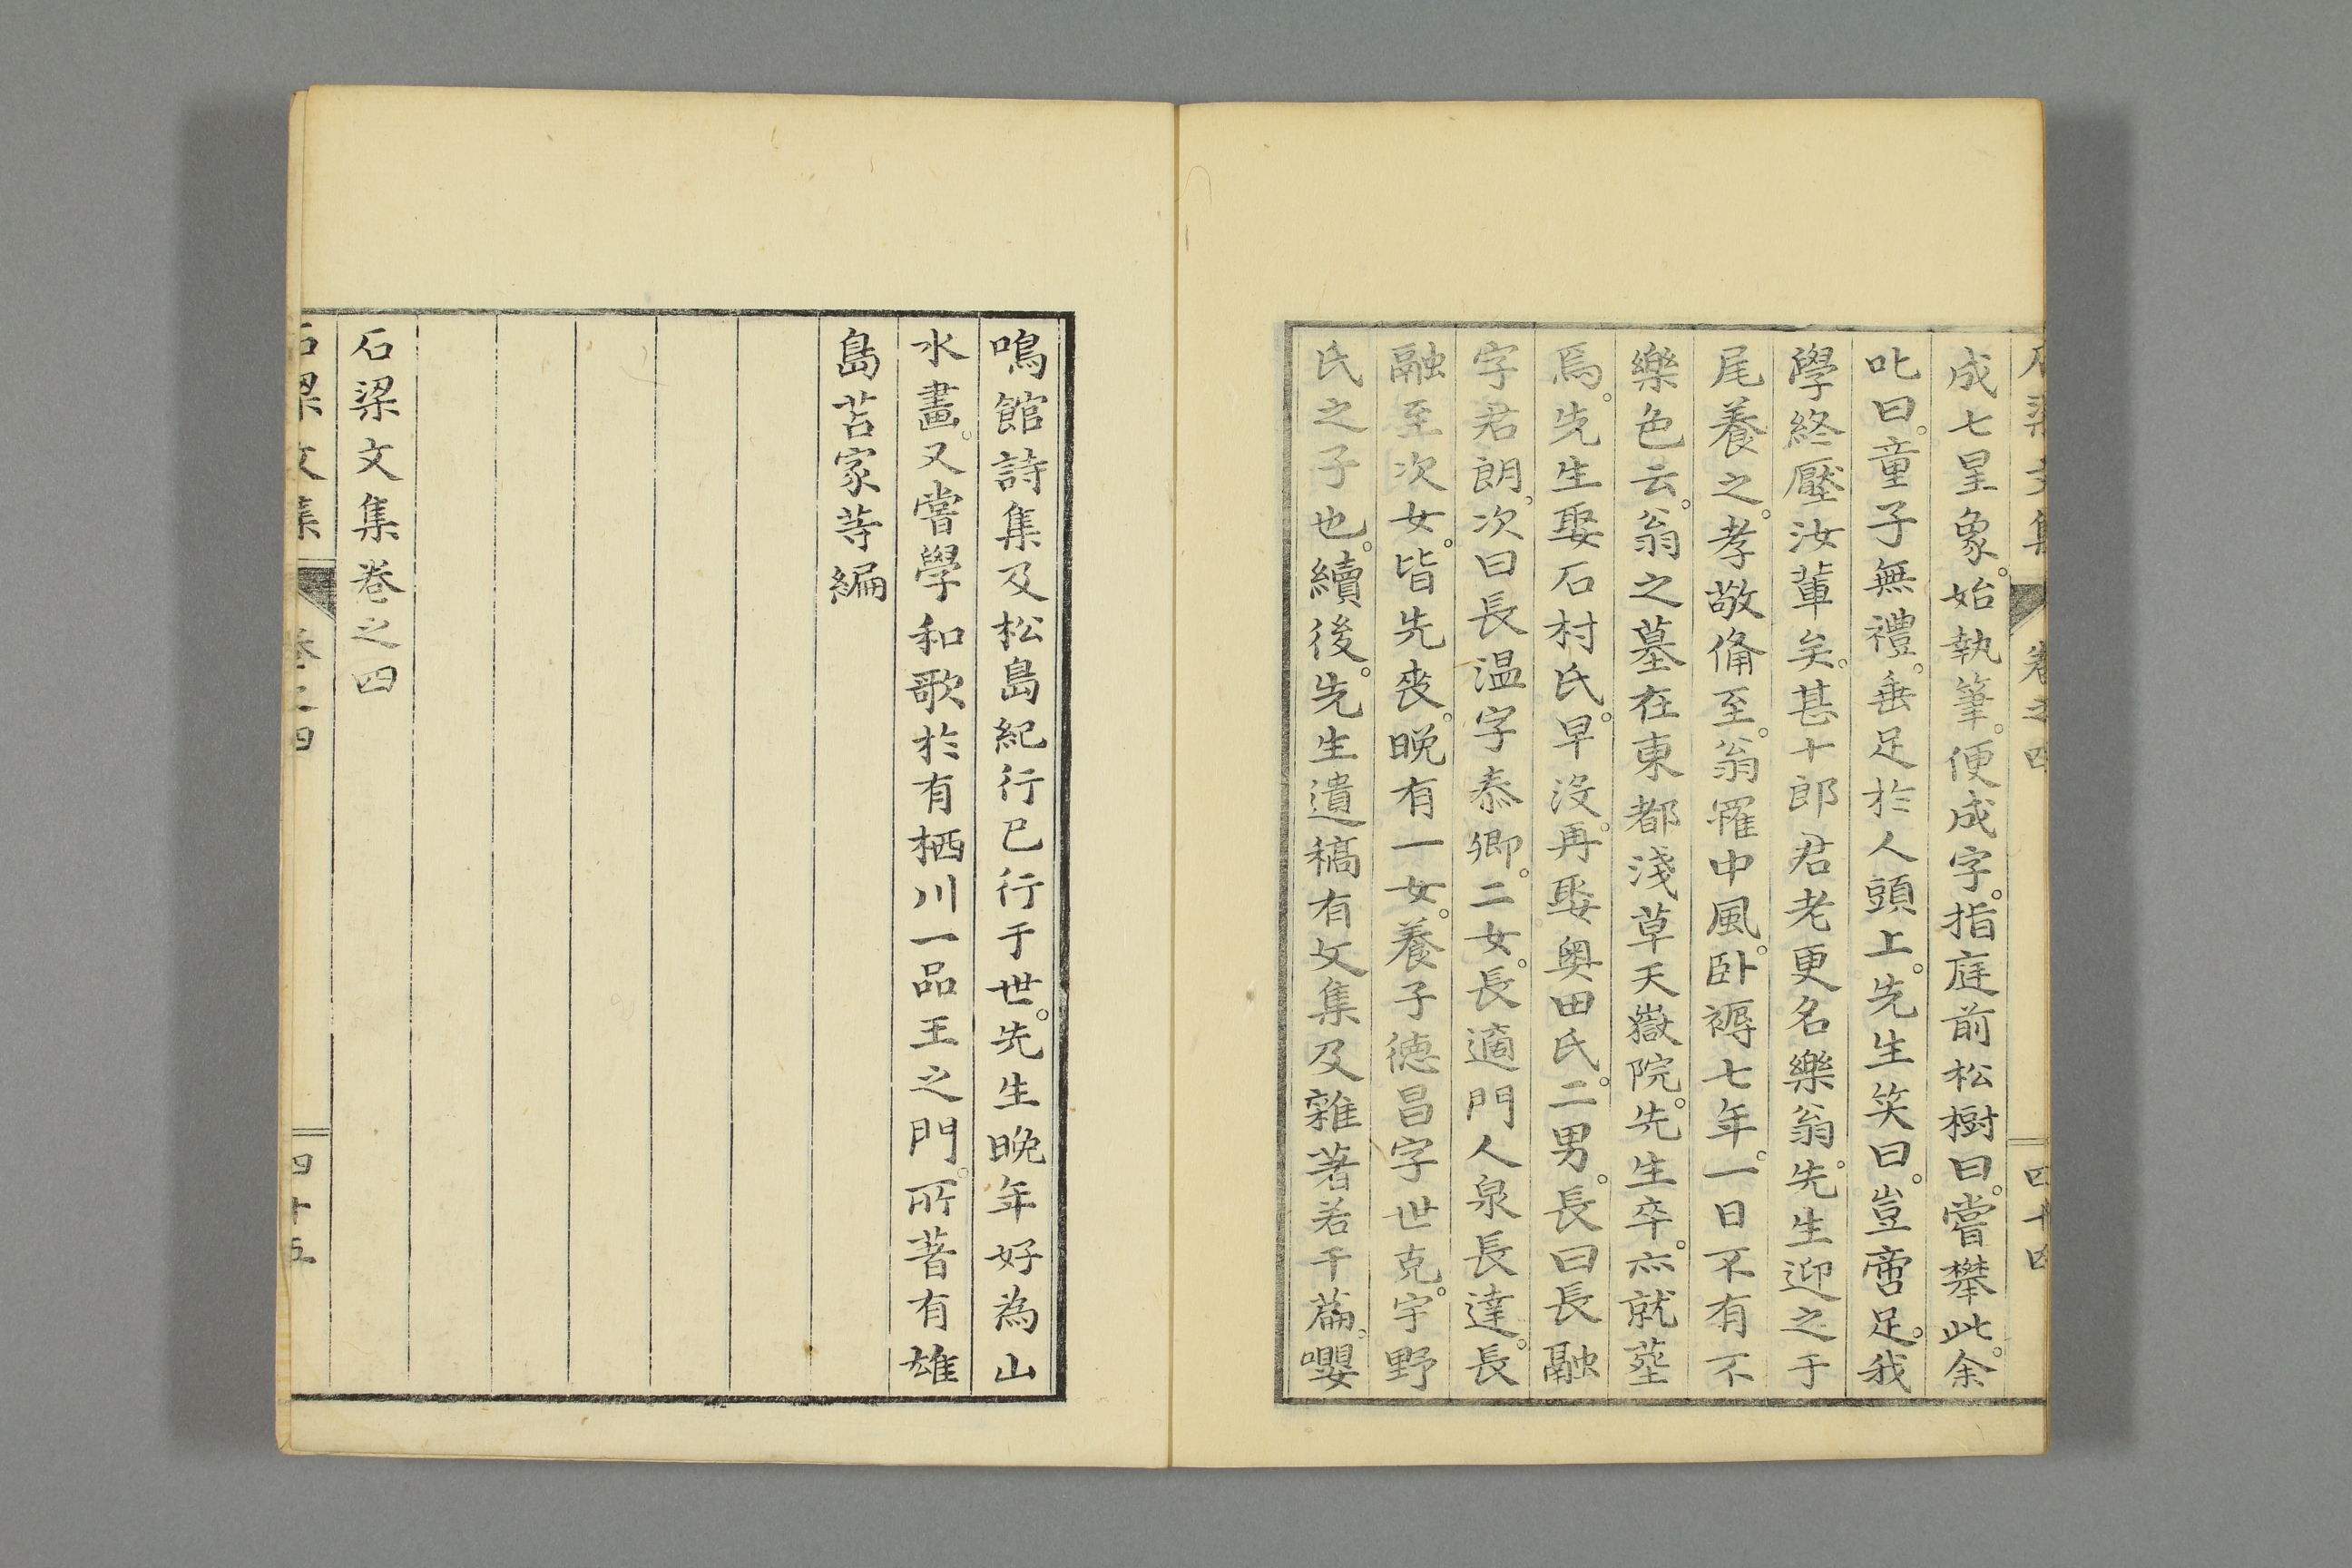 石梁文集 卷之四 四十四
成七星象。始執筆。便成字。指庭前松樹曰。嘗攀此。余
叱曰。童子無禮。垂足於人頭上。先生笑曰。豈啻足。我
學終壓汝輩矣。甚十郎君老更名樂翁。先生迎之于
尾養之。孝敬俻至。翁罹中風。卧褥七年。一日不有不
樂色云。翁之墓在東都淺草天嶽院。先生卒。亦就塟
焉。先生娶石村氏。早沒。再娶奥田氏。二男。長曰長融
字君朗。次曰長温字泰卿。二女。長適門人泉長達。長
融至次女。皆先丧。晩有一女。養子德昌字世克。宇野
氏之子也。續後。先生遺稿有文集及雜著若干篇。嚶
鳴館詩集及松島紀行已行于世。先生晚年好為山
水畫。又嘗學和歌於有栖川一品王之門。所著有雄
島苫家䓁編
石梁文集卷之四
石梁文集 卷之四 四十五